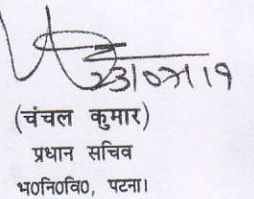 (चंचल कुमार)
प्रधान सचिव
भ०नि०वि०, पटना।